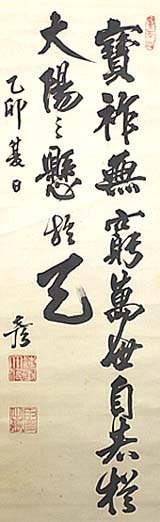 寶祚無窮萬世自若猶
大陽之懸於天
乙卯夏日